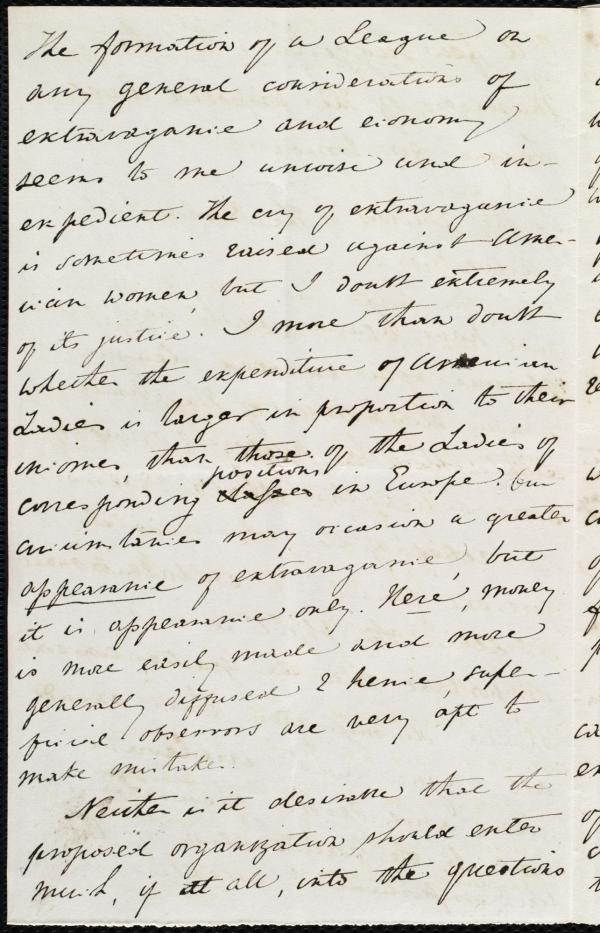 The formation of a League on
any general considerations of
extravagance and economy
seems to me unwise and in-
expedient. The cry of extravagance
is sometimes raised against Ame-
rican women, but I doubt extremely
of its justice. I more than doubt
whether the expenditure of American
Ladies is larger in proportion to their
incomes, than those of the Ladies of
positions
corresponding classes in Europe. Our
circumstances may occasion a greater
appearance of extravagance, but
it is appearance only. Here, money
is more easily made and more
generally diffused & hence, super-
ficial observors are very apt to
make mistakes.
Neither is it desirable that the
proposed organization should enter
much, if at all, into the questions